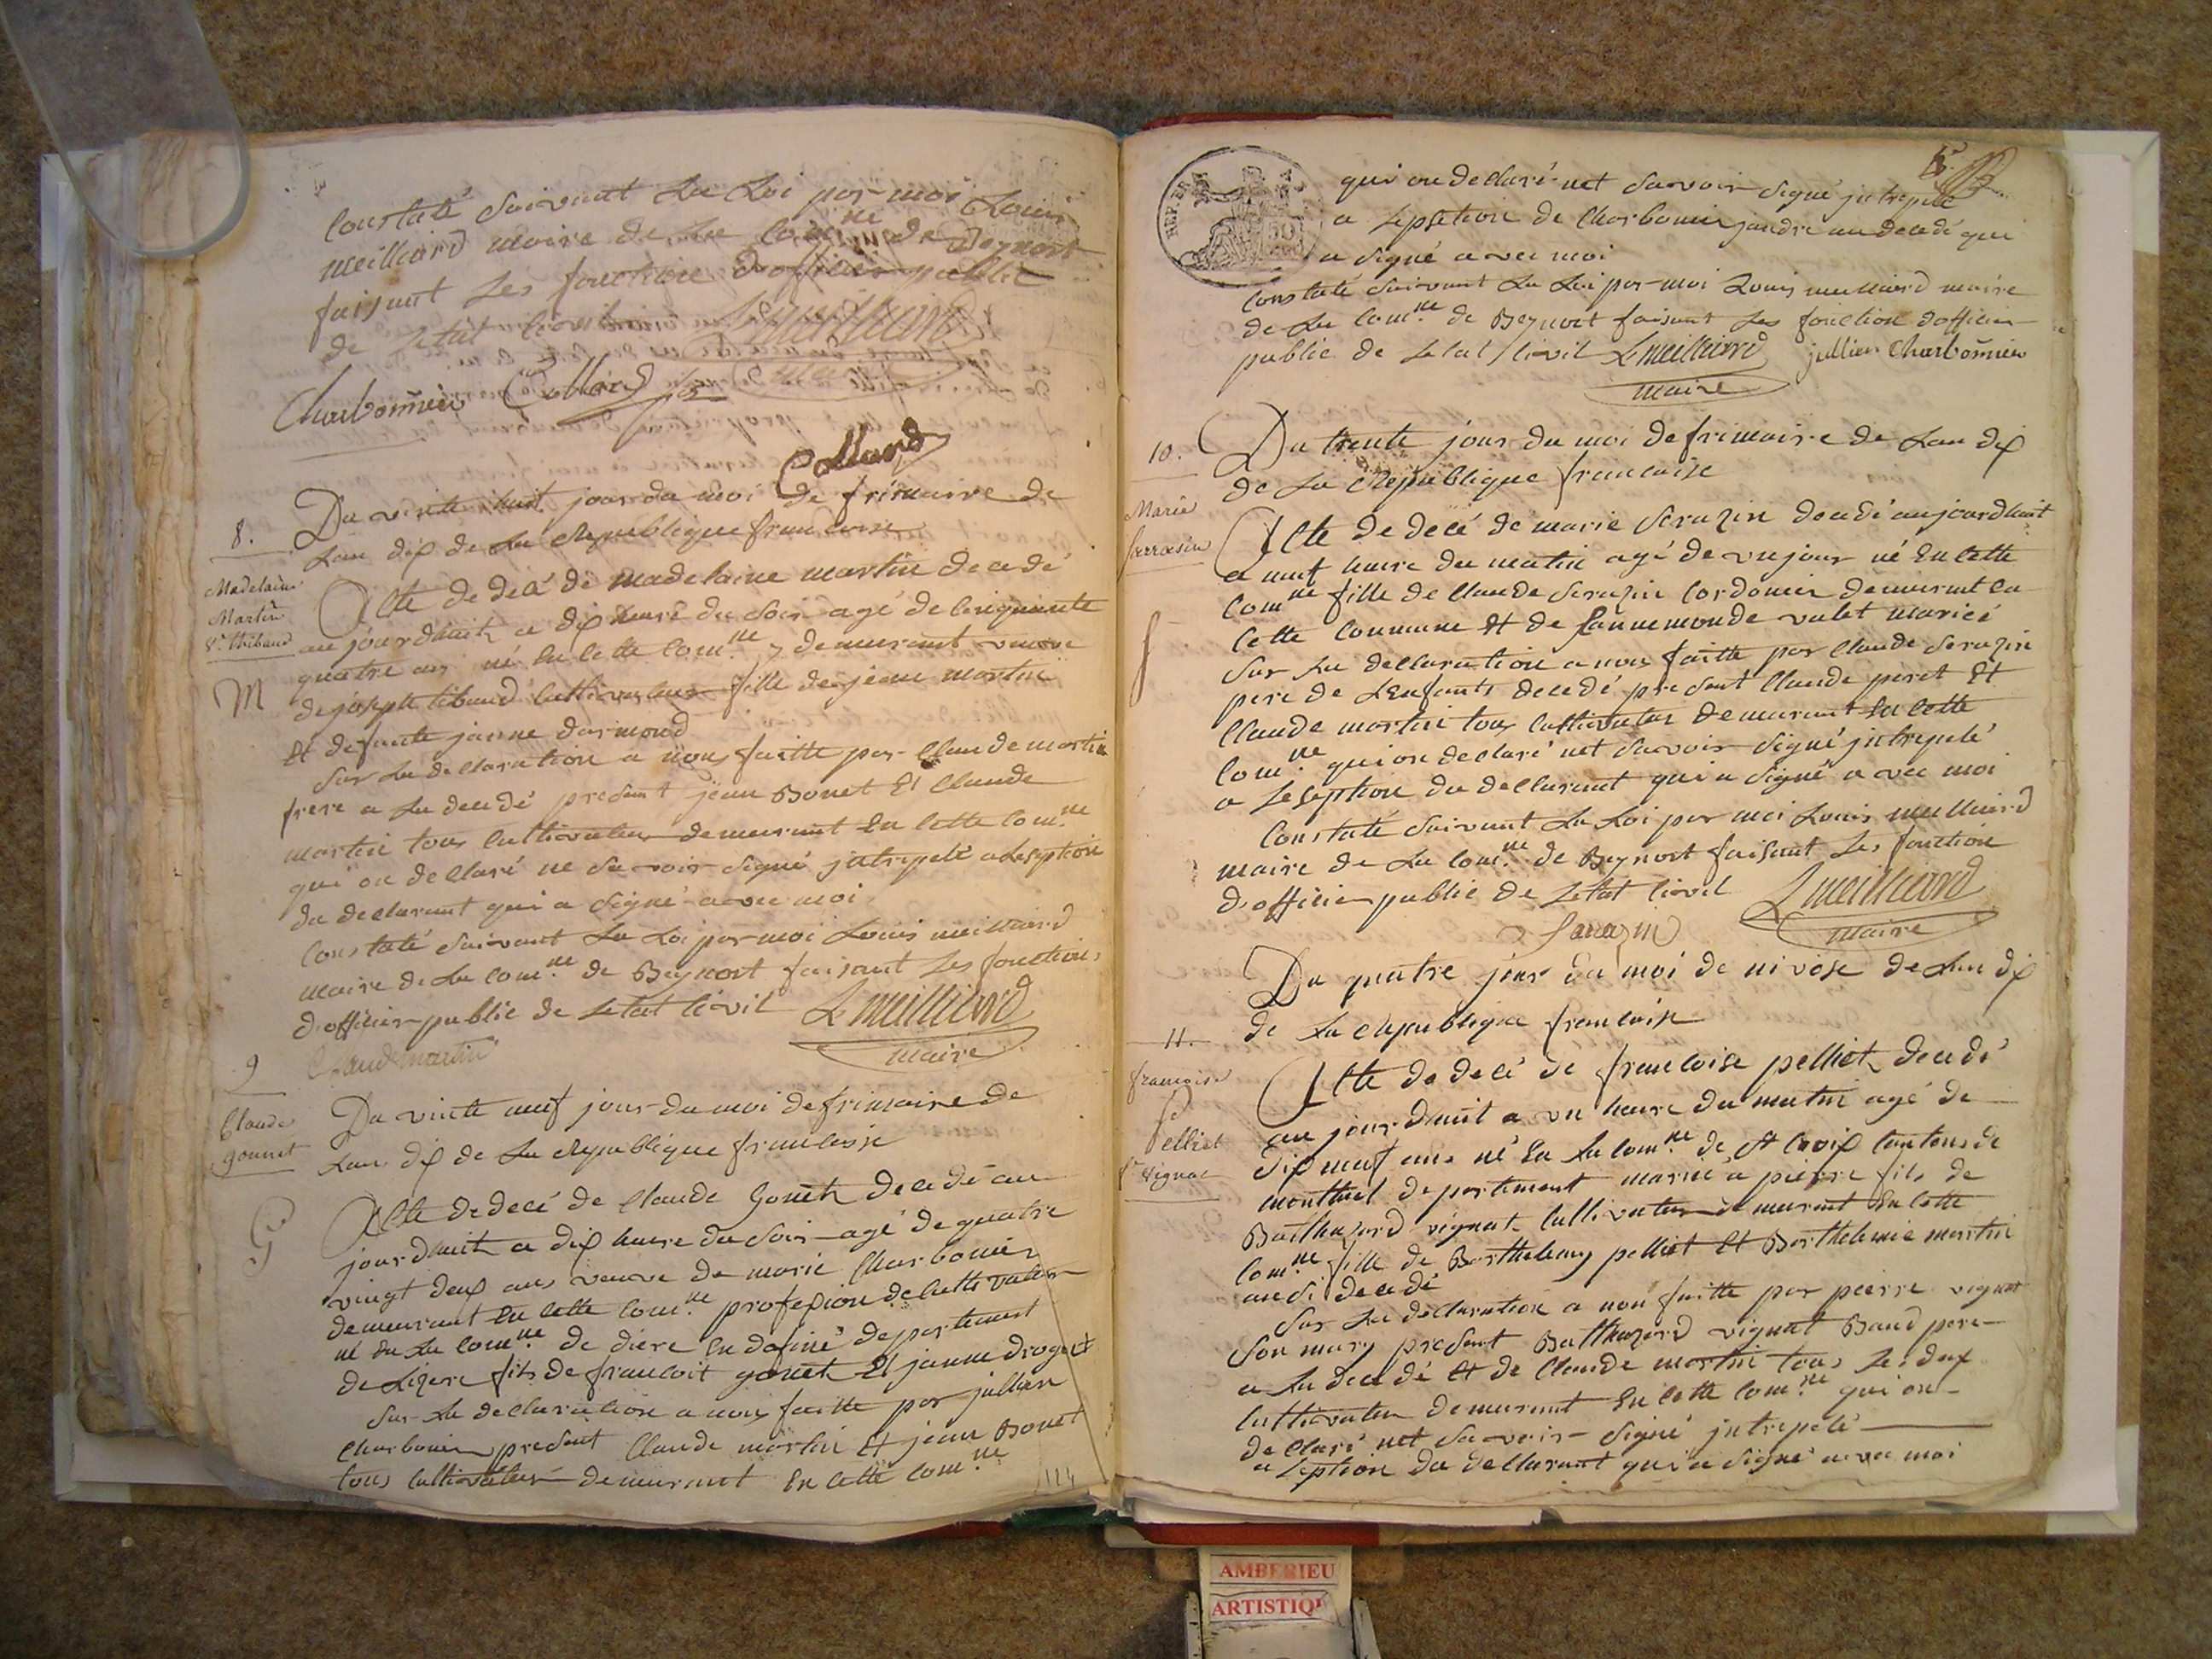 Constaté suivant La Loi par moi Louis
meilliard maire de La Com.ne de Beynost
faisant Les fonction dofficier public
de Letat Civil L meilliard
Charbonnier Collard
Collard
8. Du vinte huit jour du moi de frimaire de
Lan dix de La Republique francaise
Madelaine
Martin
Ve. thibaud
M
Acte de decé de madelaine martin decedé
au jourdhuit a dix heure du soir agé de cinquante
quatre ans né En cette Com.ne y demeurant veuve
de joseph tibaud cultivateur fille de jean martin
Et defunte janne darmond
Sur La declaration a nous faitte par Claude martin
frere a La decedé present jean Bonet Et Claude
martin tous cultivateur demeurant En cette Com.ne
qui on declaré ne savoir signé jntrepelé a Leseption
du declarant qui a signé avec moi
Constaté suivant La Loi par moi Louis meilliard
maire de La Com.ne de Beynost faisant Les fonctions
dofficier public de Letat Civil L meilliard
Claude martin maire
9
Claude
gonnet
G
Du vinte neuf jour du moi de frimaire de
Lan dix de La Republique francaise
Acte de decé de Claude Gonet decedé au
jourdhuit a dix heure du soir agé de quatre
vingt deux ans veuve de marie Charbonier
demeurant En cette Com.ne profesion de cultivateur
né du La Com.ne de diere En dofiné departement
de Lizere fils de francoit gonet Et janne droguet
Sur La declaration a nous faitte par jullien
Charbonier present Claude martin Et jean Bonet
tous cultivateur demeurant En cette Com.ne
124
REP. FRA
50
qui on declaré net savoir signé jntrepelé
a Lepsetion de Charbonier jandre au decedé qui
a signé avec moi
Constaté suivant La Loi par moi Louis meilliard maire
de La Com.ne de Beynost faisant Les fonction dofficier
public de Letat Civil L meilliard jullien Charbonnier
maire
10. Du trente jour du moi de frimaire de Lan dix
de La Republique francaise
Marie
Sarrasin
S
Acte de decé de marie Serazin decedé aujourdhuit
a neuf heure du matin agé de un jour né En cette
Com.ne fille de Claude Serazin Cordonier demeurant En
cette commune Et de Lannemonde valet mariée
Sur La declaration a nous faitte par Claude Serazin
pere de Lenfants decedé present Claude peret Et
Claude martin tous cultivateur demeurant En cette
Com.ne qui on declaré net savoir signé jntrepelé
a Leseption du declarant qui a signé avec moi
Constaté suivant La Loi par moi Louis meilliard
maire de La Com.ne de Beynost faisant Les fonction
dofficier public de Letat Civil L meilliard
Sarazin maire
Du quatre jour du moi de nivose de Lan dix
11. de La Republique francaise
francoise
P
elliet
fe vignat
Acte de decé de francoise pelliet decedé
au jourdhuit a un heure du matin agé de
dix neuf ans né En La Com.ne de St Croix Canton de
montluel departement marié a pierre fils de
Balthazard vignat cultivateur demeurant En cette
Com.ne fille de Barthelemy pelliet Et Barthelemie martin
ausi decedé
Sur La declaration a nou faitte par pierre vignat
Son mary present Balthazard vignat Baud pere
a La decedé Et de Claude martin tous Les deux
cultivateur demeurant En cette Com.ne qui on
declaré net savoir signé jntrepelé
a Leption du declarant qui a signé avec moi
AMBERIEU
ARTISTIQU